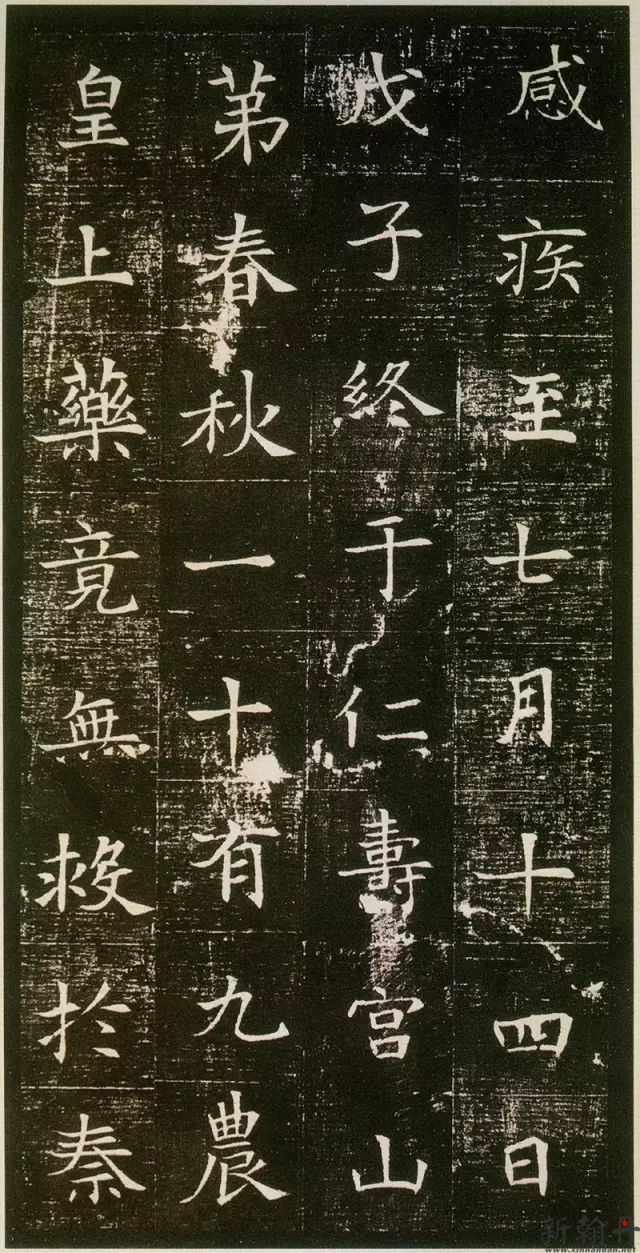 感疾至七月十四日
戊子終于仁壽宮山
苐春秋一十有九農
皇上藥竟無救於秦
新翰丹
www.xinhandan.net